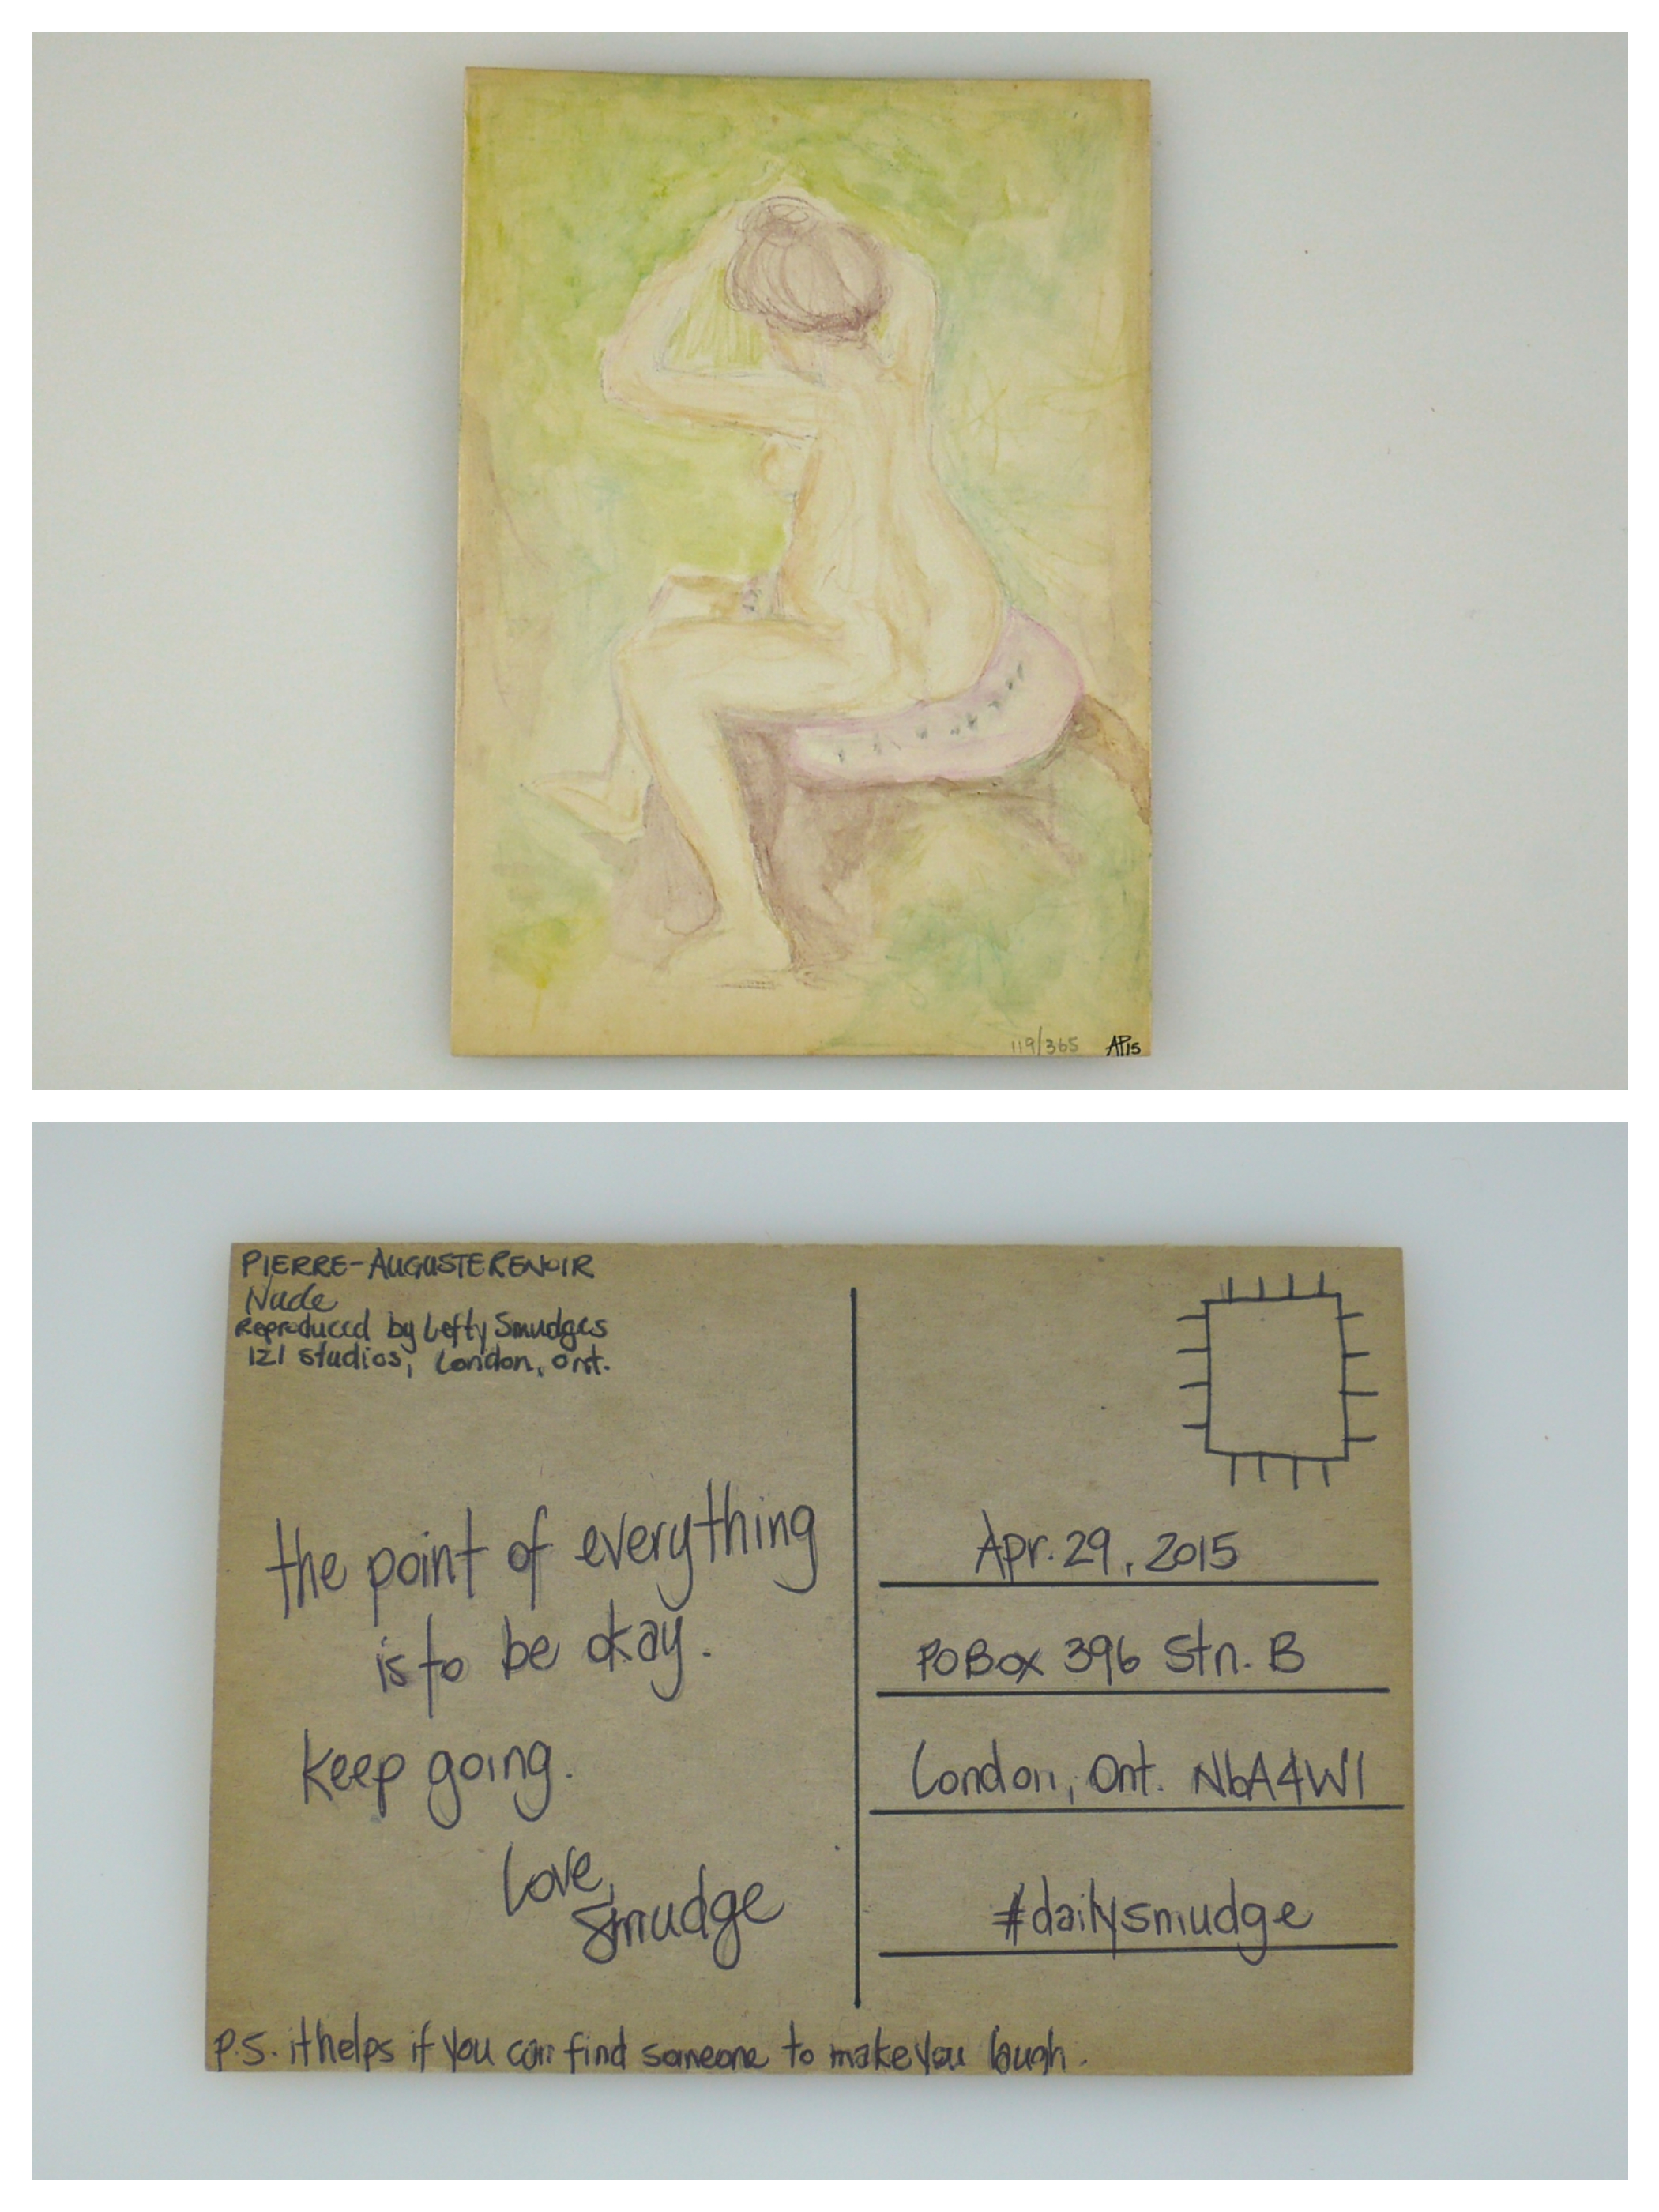 119/365 AP15
PIERRE-AUGUSTE RENOIR
Nude
Reproduced by Lefty Smudges
121 studios, London, Ont.
the point of everything
is to be okay.
keep going.
Love,
Smudge
P.S. it helps if you can find someone to make you laugh.
Apr. 29, 2015
PO Box 396 Stn. B
London, Ont. N6A4W1
#dailysmudge